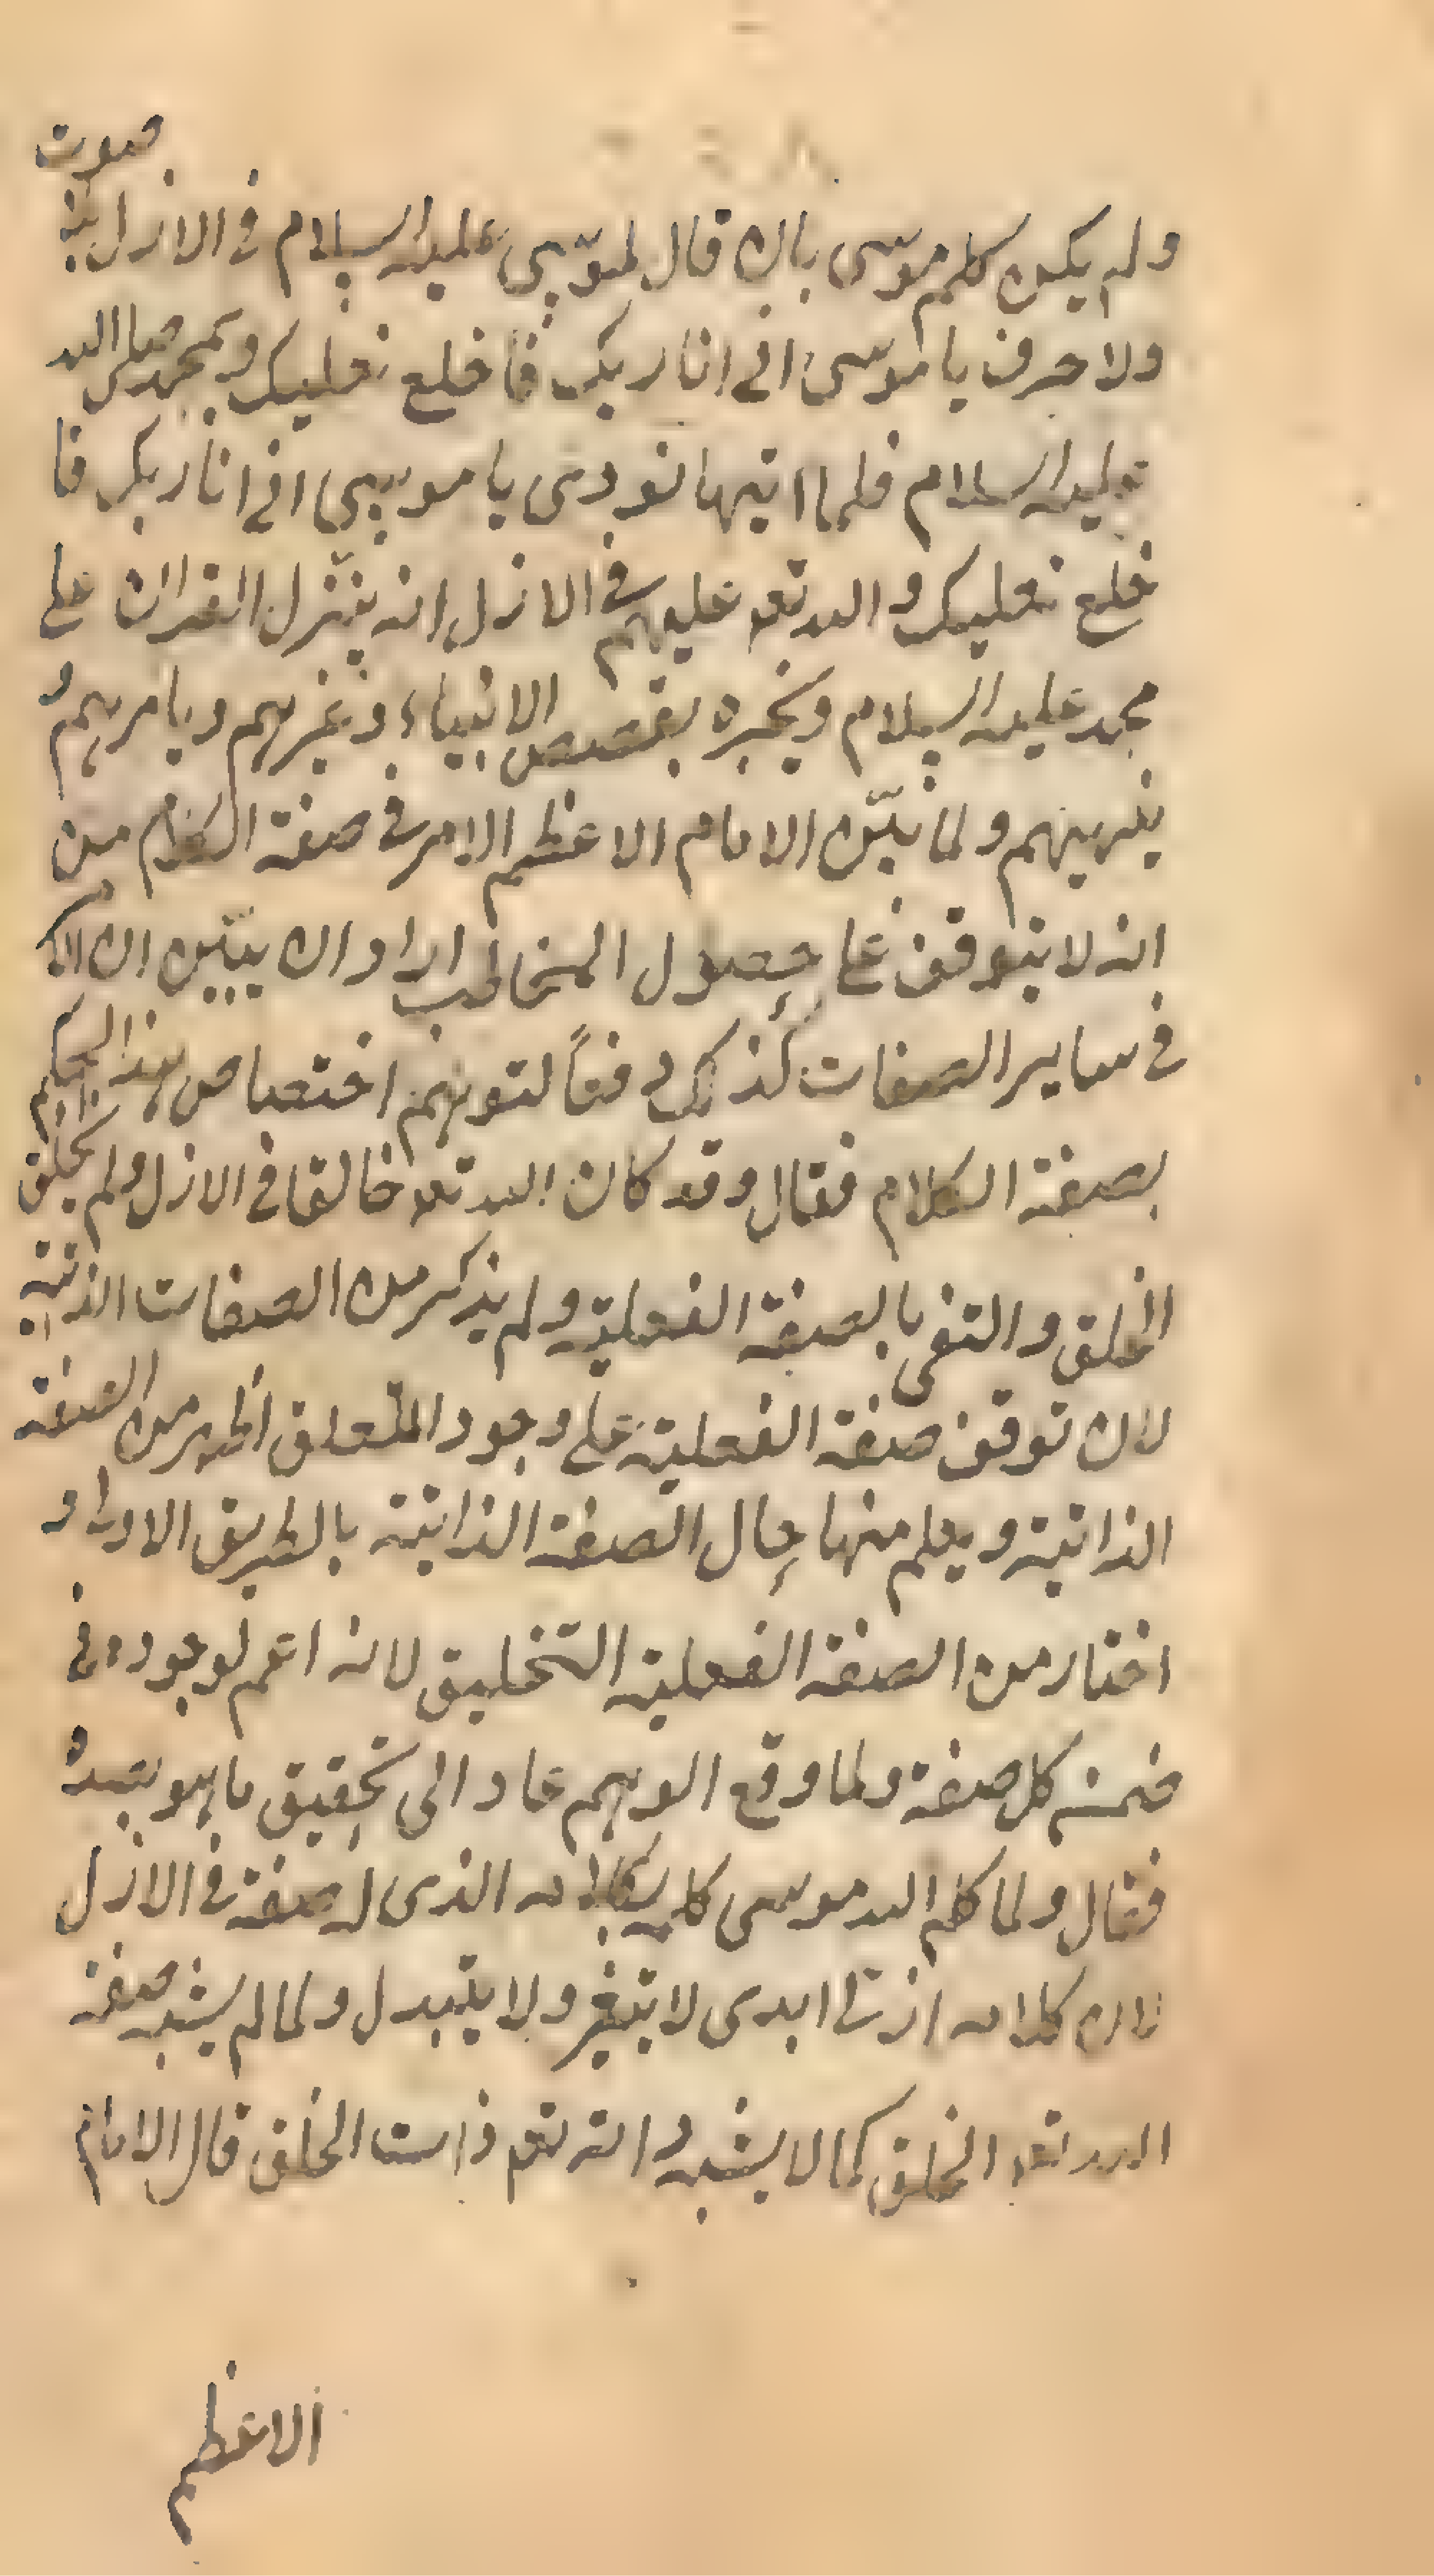 صوت
ولم يكن كلم موسى بان قال لموسى عليه السلام في الازل بلا
ولا حرف يا موسى اني انا ربك فاخلع نعليك وبمحمد صلى الله
عليه السلام فلما اتيها نودى يا موسى اني انا ربك فا
خلع نعليك والله تع عليم في الازل انه ينزل القران على
محمد عليه السلام ويخبره بقصص الانبياء وغيرهم ويامرهم و
ينهيهم ولما بيّن الامام الاعظم الامر في صفة الكلام من
انه لا يتوقف على حصول المخاطب اراد ان يبيّن ان الا
في ساير الصفات كذلك دفعاً لتوهم اختصاص هذا الحكم
بصفة الكلام فقال وقد كان الله تع خالقا في الازل ولم يخلق
الخلق والتفى بالصفة الفعلية ولم يذكر من الصفات الذاتية
لان توقف صفة الفعلية على وجود المتعلق اظهر من الصفة
الذاتية ويعلم منها حال الصفة الذاتية بالطريق الاولى و
اختار من الصفة الفعلية التخليق لانه اعم لوجوده في
ضمن كل صفة ولما وقع الوهم عاد الى تحقيق ما هو بصدده
فقال ولما كلم الله موسى كلمه بكلامه الذى له صفة في الازل
لان كلامه ازلى ابدى لا يتغير ولا يتبدل ولما لم يشبه صفة
الله تع الخلق كما لا يشبه ذاته تع ذات الخلق قال الامام
الاعظم